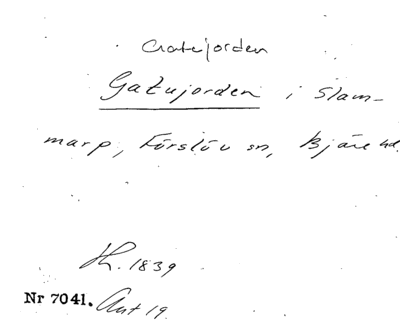 Gatejorden
Gatujorden i Slam-
marp, Förslöv sn, Bjäre hd.
Lh. 1839
Nr 7041. Ant 19.